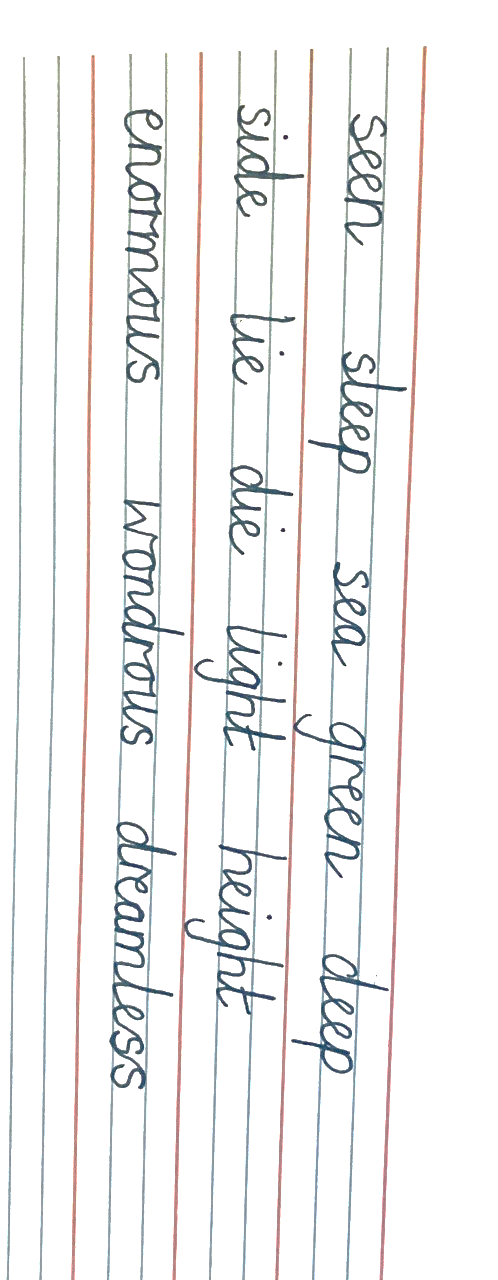 seen sleep sea green deep
side lie die light height
enormous wondrous dreamless